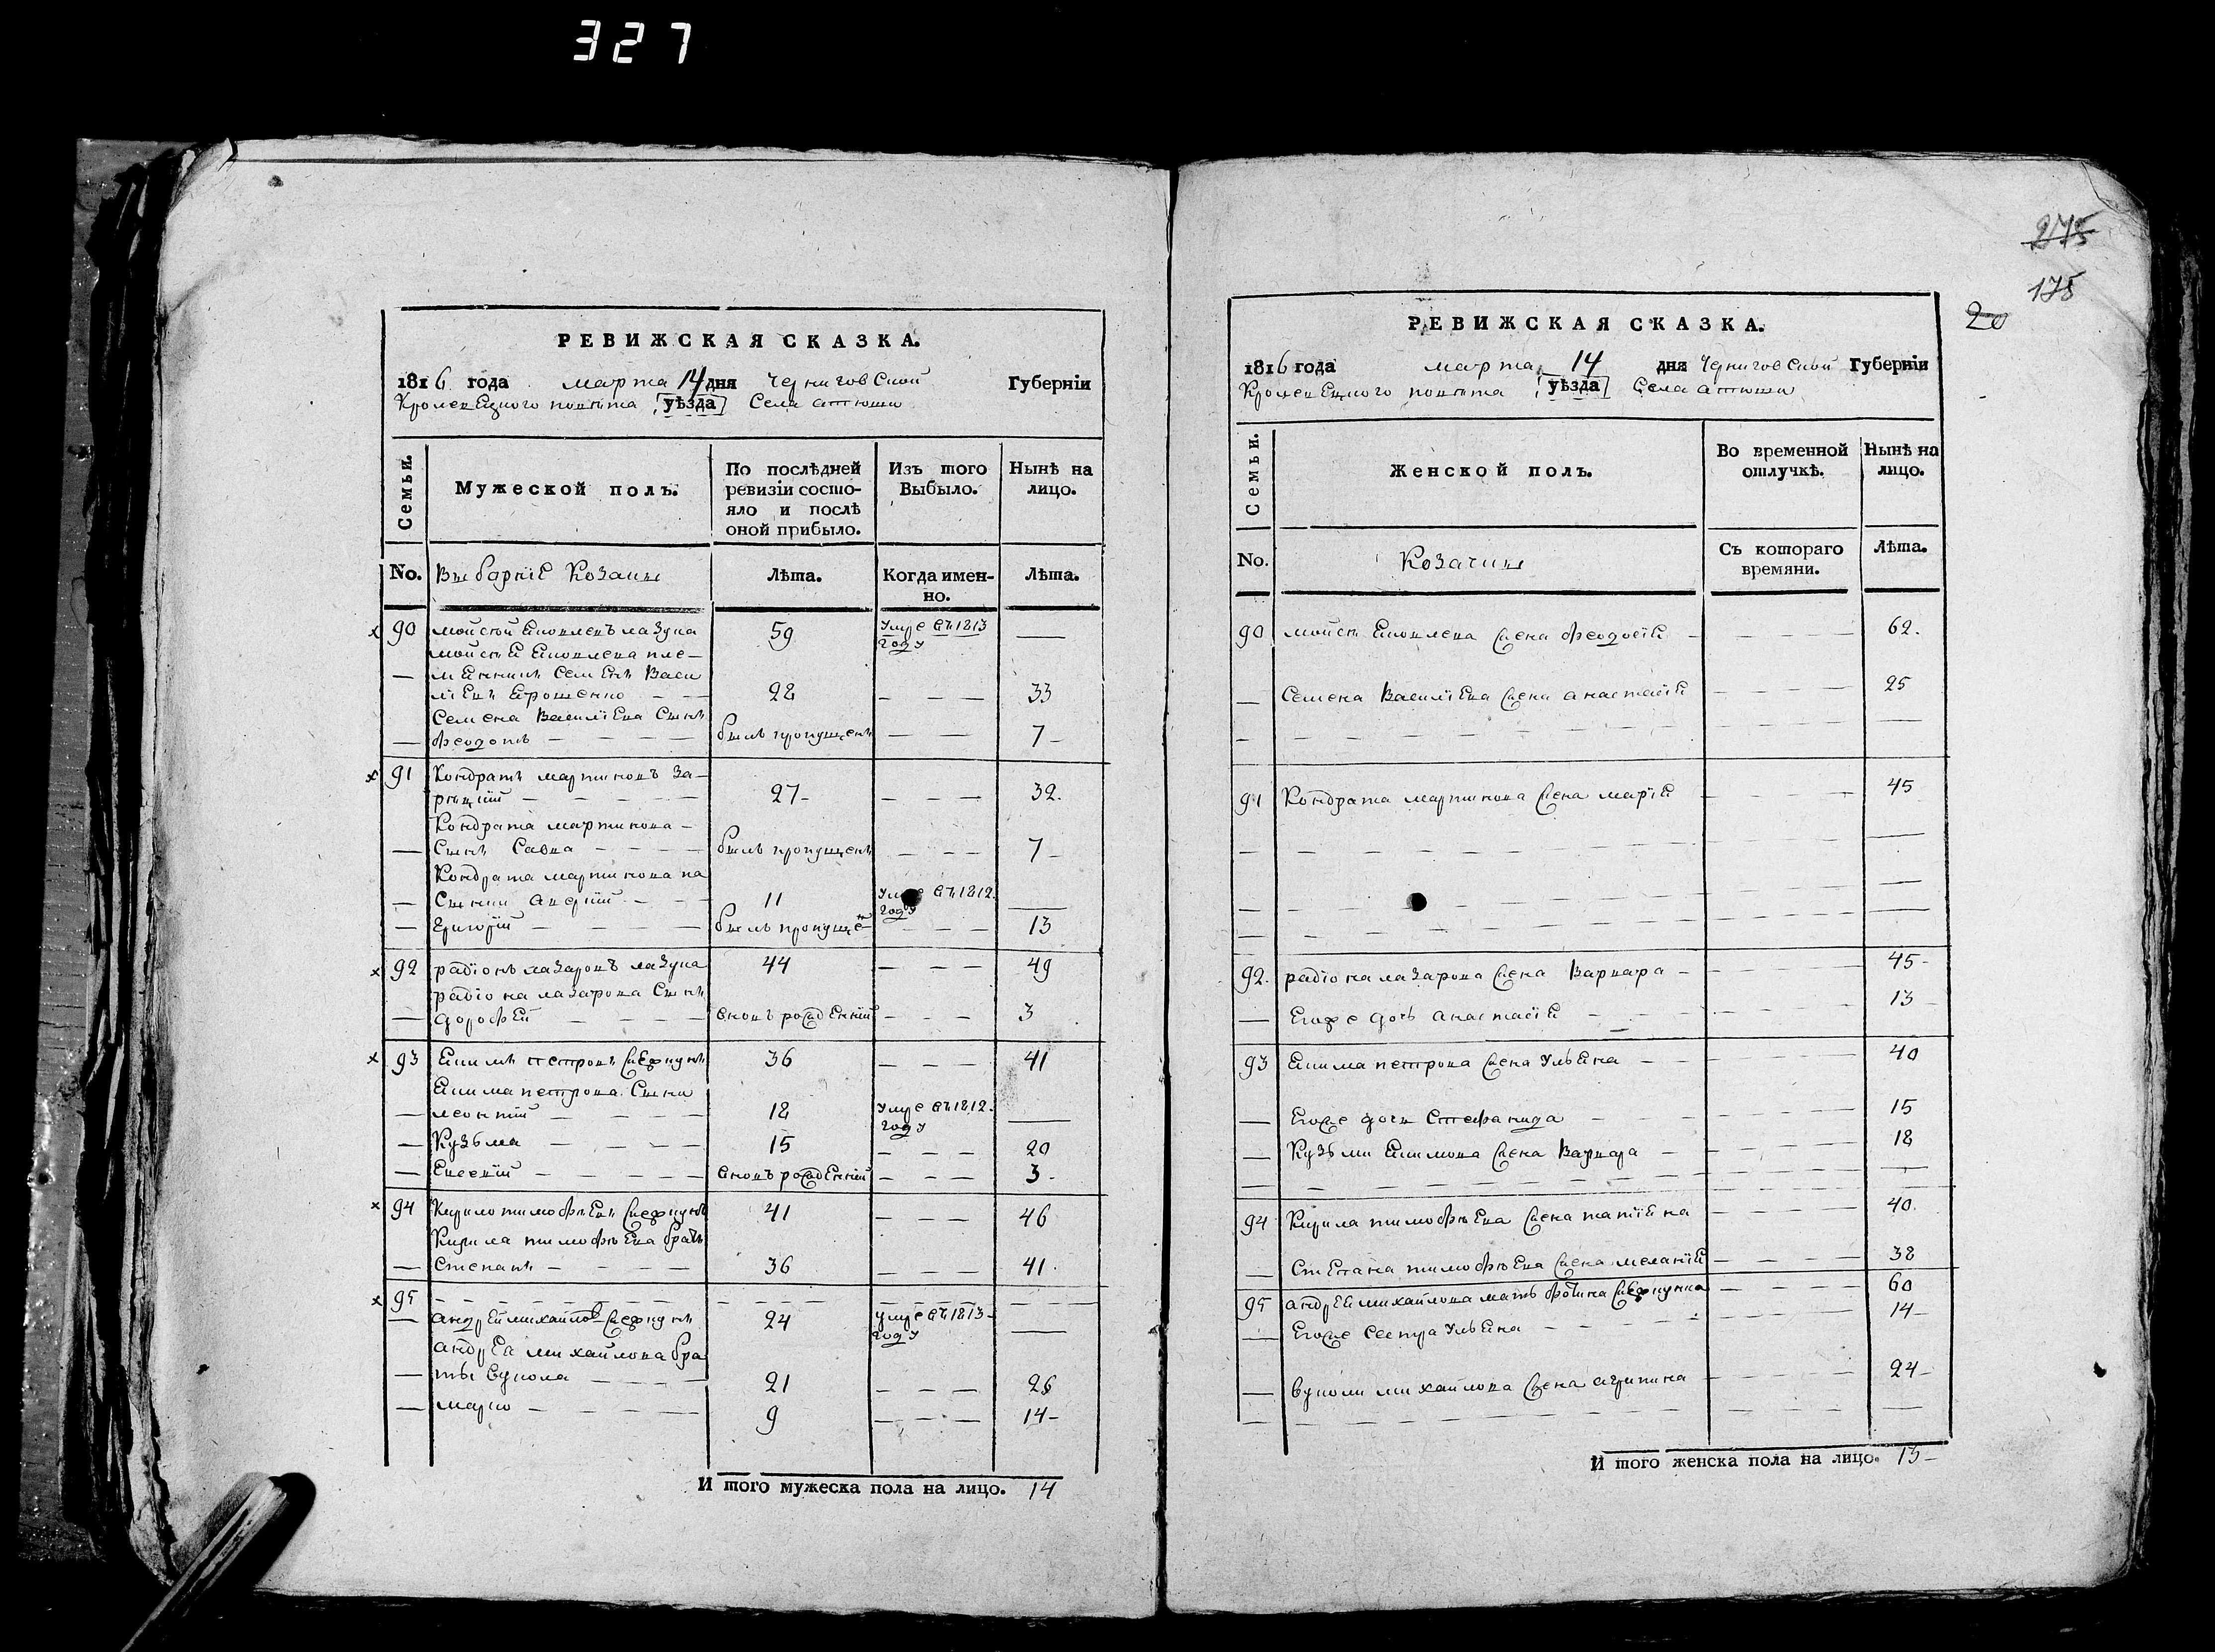 327
РЕВИЖСКАЯ СКАЗКА.
1816 года марта 14 дня Черниговской Губерніи
Кролевецкого повѣта уѣзда Села атюши
Семьи.
Мужеской полъ.
По послѣдней ревизіи состо-
яло и послѣ
оной прибыло.
Изъ того
Выбыло.
Нынѣ на
лицо.
No. Выборніе Козаки Лѣта. Когда имен-
но. Лѣта.
90 мойсей Яковлевъ лазука 59 умре въ 1813
году
мойсея Яковлева пле-
мянникъ Семенъ Васи
лiевъ Ярошенко 28 33
Семена Василіева Сынъ
феодотъ былъ пропущенъ 7
91 Кондратъ мартиновъ За-
рецкий 27 32.
Кондрата мартинова
Сынъ Савва былъ пропущенъ 7
Кондрата мартинова па
Сынки аверкий 11 умре въ 1812.
году
Григорій былъ пропущен 13
92 радіонъ лазаровъ лазука 44 49
радіона лазарова Сынъ
дорофей вновъ рожденній 3
93 Екимъ петровъ 36 41
Екима петрова Сыни
леонтій 18 умре въ 1812.
году
Кузьма 15 20
Евсевій вновъ рожденній 3
94 Кирило тимофѣевъ 41 46
Кирила тимофѣева братъ
Степанъ 36 41
95
андрей михайловъ 24 умре въ 1813
году
андрея михайлова бра
тья вукола 21 26
марко 9 14
И того мужеска пола на лицо. 14
275
175
20
РЕВИЖСКАЯ СКАЗКА.
1816 года марта 14 дня Черниговской Губерніи
Кролевецкого повѣта уѣзда Села атюши
Семьи.
Женской полъ.
Во временной
отлучкѣ.
Нынѣ на
лицо.
No. Козачки Съ котораго
времяни. Лѣта.
90 мойсея Яковлева жена феодосія 62.
Семена Василіева жена анастасія 25
91 Кондрата мартинова жена марія 45
92. радіона лазарова жена Варвара 45
Егоже дочь анастасія 13
93 Екима петрова жена Ульяна 40
Егоже дочь Стефанида 15
Кузьми Екимова жена Варвара 18
94 Кирила тимофѣева жена татіяна 40.
Степана тимофѣева жена меланія 38
95 андрея михайлова мать фотина 60
Егоже Сестра Ульяна 14
вуколи михайлова жена агрипина 24
И того женска пола на лицо. 13